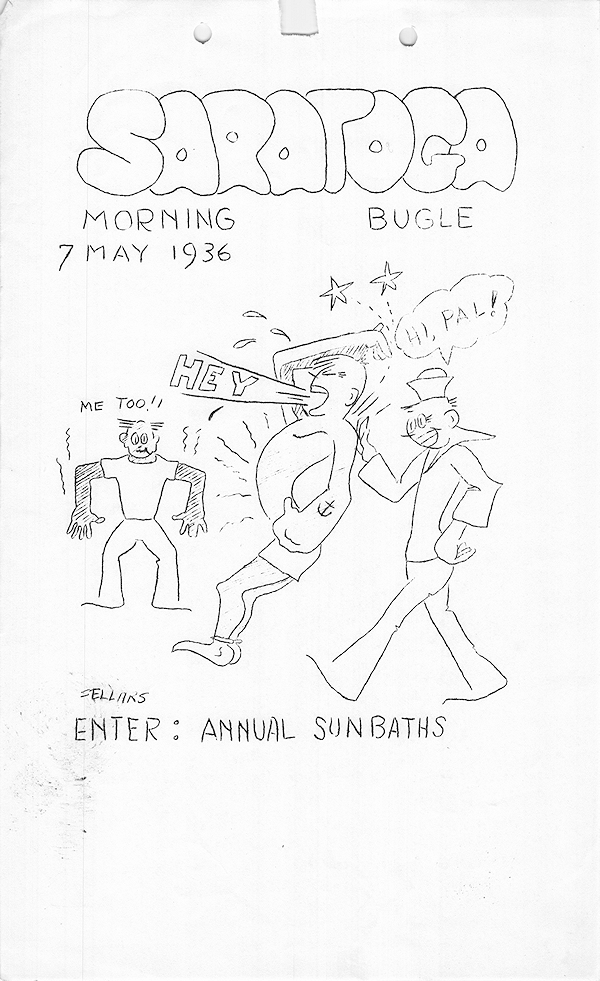 SARATOGA
MORNING BUGLE
7 MAY 1936
HI, PAL!
HEY
ME TOO!!
ENTER: ANNUAL SUNBATHS